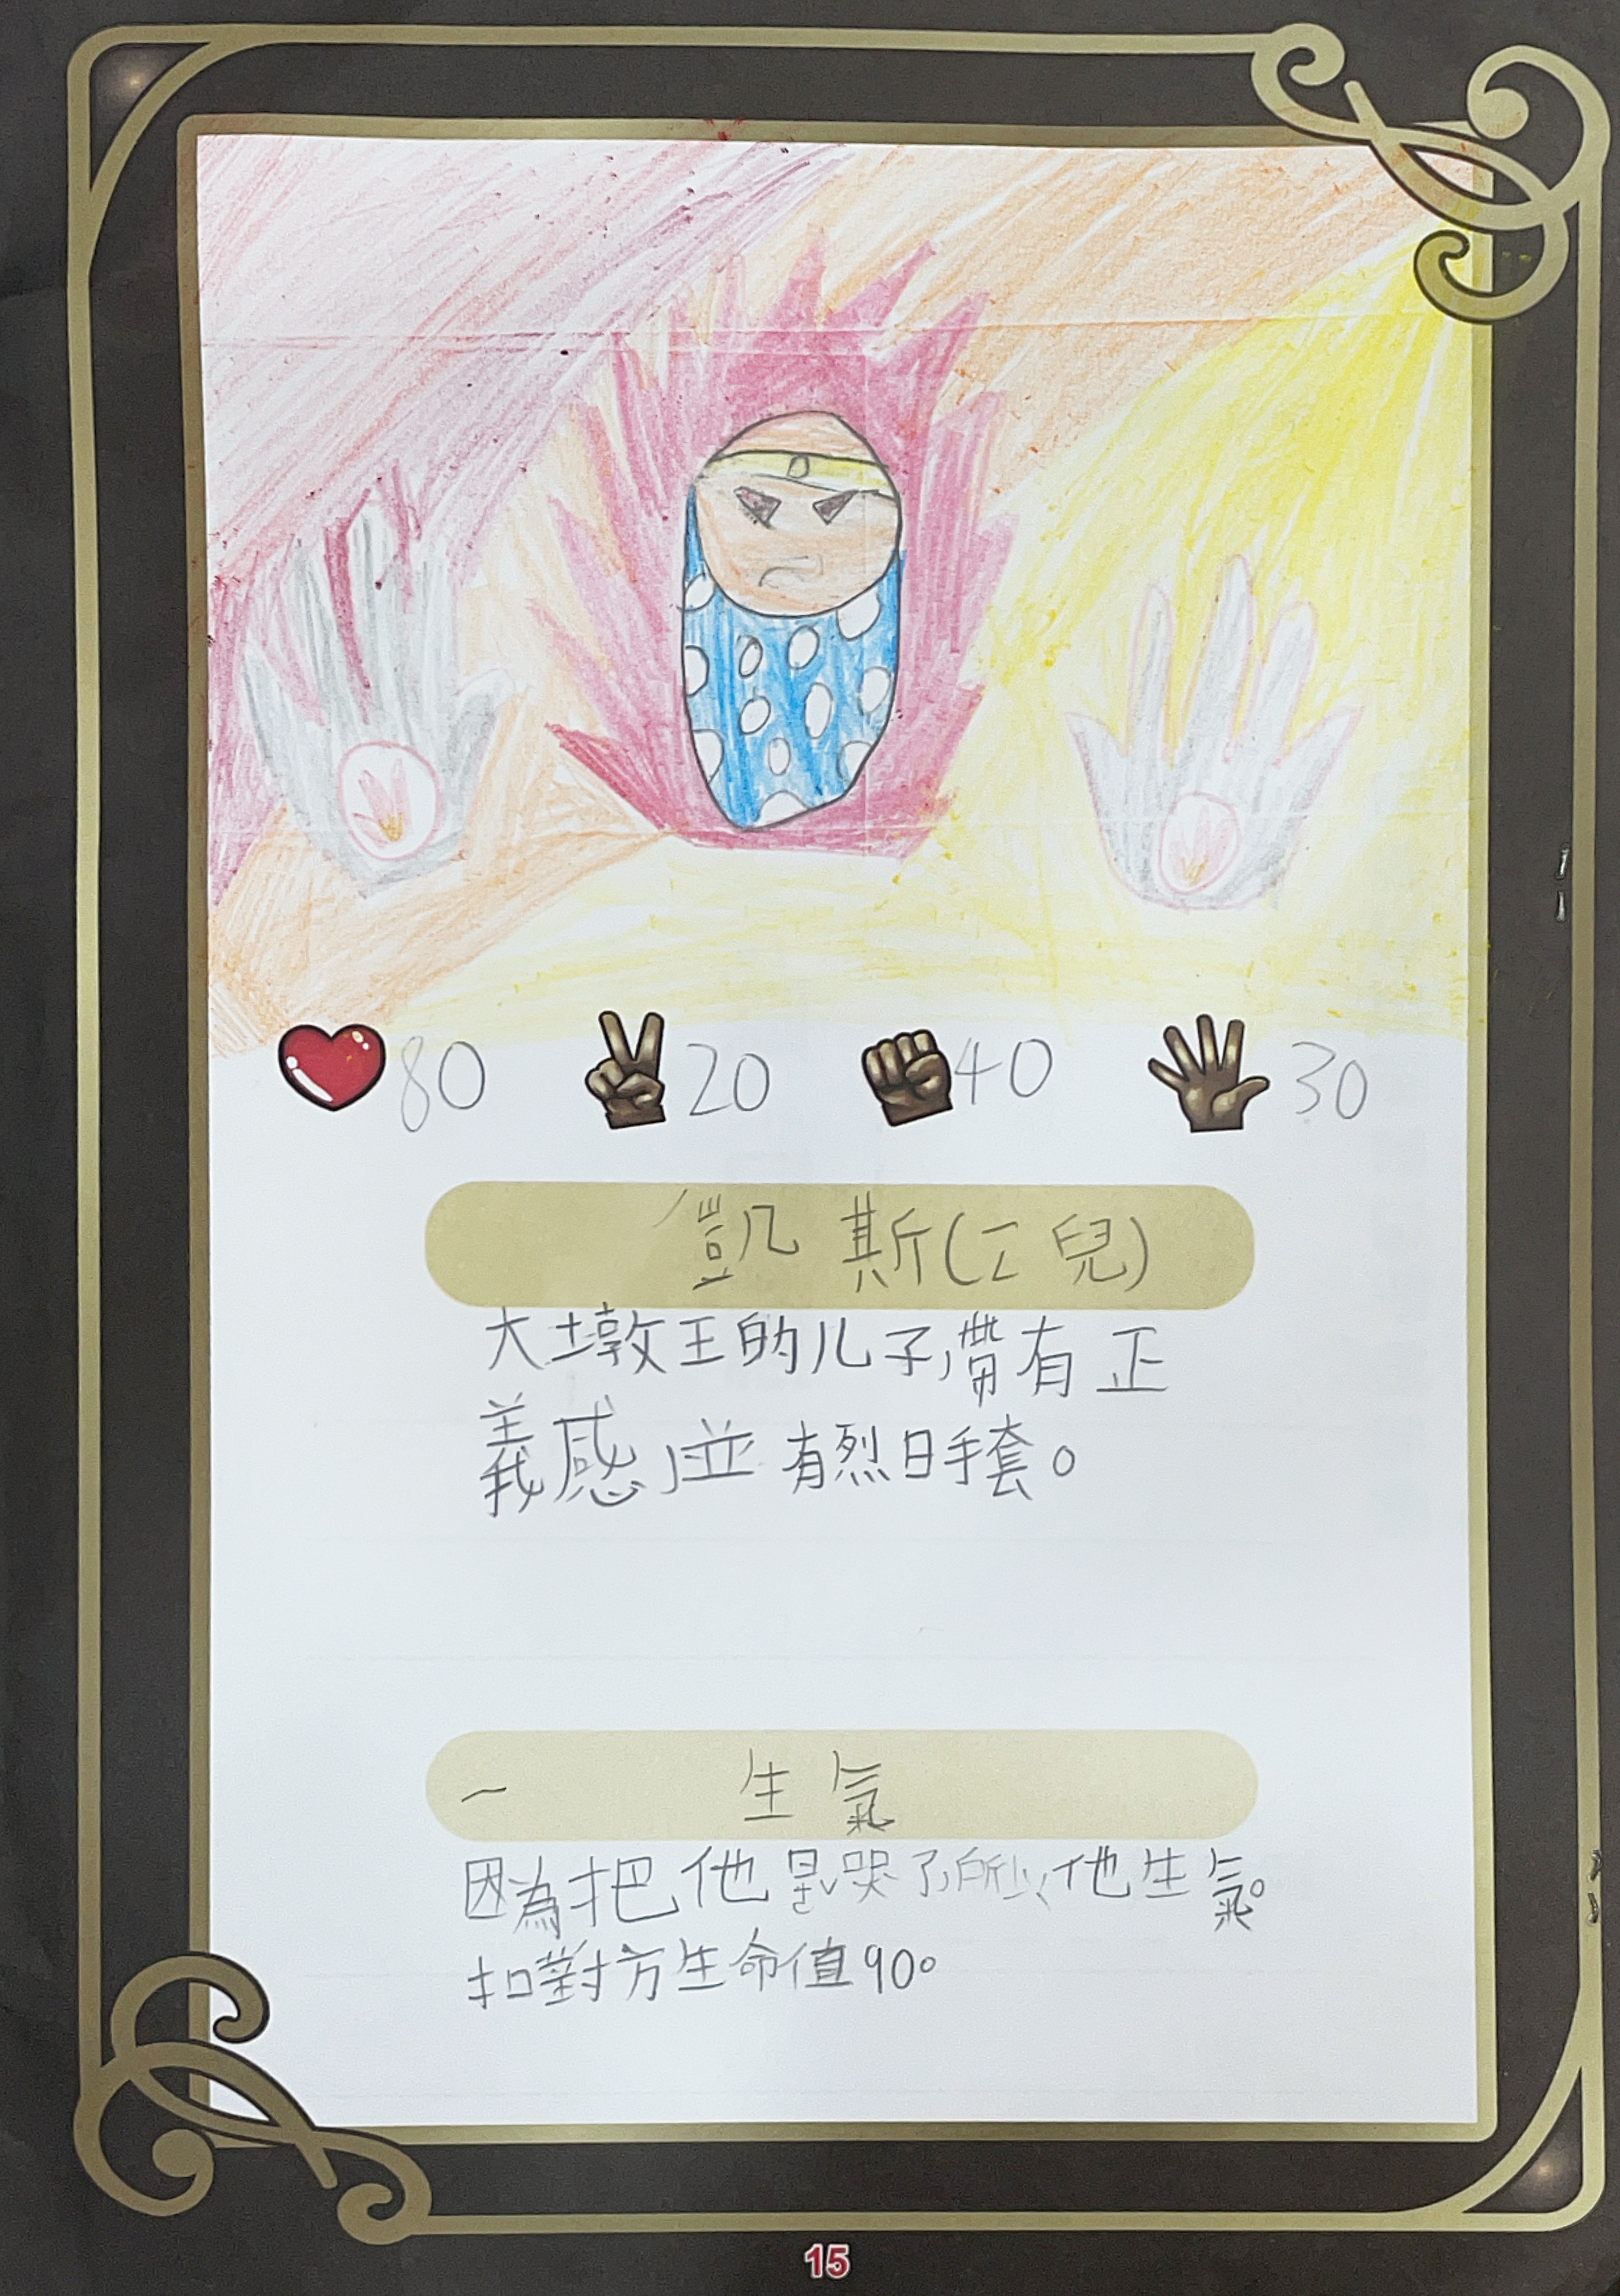 80 20 40 30
凱斯(工兒)
大墩王的儿子,帶有正
義感,並有烈日手套。
一 生氣
因為把他哭了,所以他生氣。
扣對方生命值90。
15